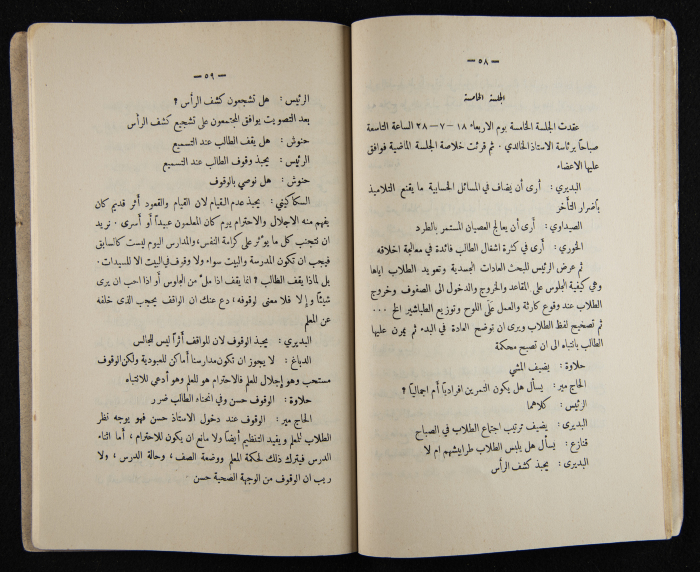 — ٥٨ —
الجلسة الخامسة
عقدت الجلسة الخامسة يوم الاربعاء ١٨ – ٧ – ٢٨ الساعة التاسعة
صباحاً برئاسة الاستاذ الخالدي . ثم قرئت خلاصة الجلسة الماضية فوافق
عليها الاعضاء
البديري : أرى أن يضاف في المسائل الحسابية ما يقنع التلاميذ
بأضرار التأخر
الصيداوي : أرى أن يعالج العصيان المستمر بالطرد
الخوري : أرى في كثرة اشغال الطالب فائدة في معالجة اخلاقه
ثم عرض الرئيس للبحث العادات الجسدية وتعويد الطلاب اياها
وهي كيفية الجلوس على المقاعد والخروج والدخول الى الصفوف وخروج
الطلاب عند وقوع كارثة والعمل على اللوح وتوزيع الطباشير الخ ٠٠٠
ثم تصحيح لفظ الطلاب ويرى ان توضح العادة في البدء ثم يمرن عليها
الطالب بانتباه الى ان تصبح محكمة
حلاوة : يضيف المشي
الحاج مير : يسأل هل يكون التمرين افرادياً أم اجمالياً ؟
الرئيس : كلاهما
البديرى : يضيف ترتيب اجتماع الطلاب في الصباح
قنازع : يسأل هل يلبس الطلاب طرابيشهم ام لا
البديرى : يحبذ كشف الرأس
— ٥٩ —
الرئيس : هل تشجعون كشف الرأس ؟
بعد التصويت يوافق المجتمعون على تشجيع كشف الرأس
حنوش : هل يقف الطالب عند التسميع
الرئيس : يحبذ وقوف الطالب عند التسميع
حنوش : هل نوصي بالوقوف
السكاكيني : يحبذ عدم القيام لان القيام والقعود أثر قديم كان
يفهم منه الاجلال والاحترام يوم كان المعلمون عبيداً أو أسرى . نريد
ان نتجنب كل ما يؤثر على كرامة النفس ، والمدارس اليوم ليست كالسابق
فيجب ان تكون المدرسة والبيت سواء ولا وقوف في البيت الا للسيدات .
بل لماذا يقف الطالب ؟ انما يقف اذا ملّ من الجلوس أو اذا احب ان يرى
شيئاً وإلا فلا معنى لوقوفه ، دع عنك ان الواقف يحجب الذى خلفه
عن المعلم
البديرى : يحبذ الوقوف لان للواقف أثراً ليس للجالس
الدباغ : لا يجوز ان تكون مدارسنا أماكن للعبودية ولكن الوقوف
مستحب وهو إجلال للعلم فالاحترام هو للعلم وهو أدعى للانتباه
حلاوة : الوقوف حسن وفي انحناء الطالب ضرر
الحاج مير : الوقوف عند دخول الاستاذ حسن فهو يوجه نظر
الطلاب للمعلم ويفيد التنظيم أيضاً ولا مانع ان يكون للاحترام ، أما اثناء
الدرس فيترك ذلك لحكمة المعلم ووضعة الصف ، وحالة الدرس ، ولا
ريب ان الوقوف من الوجهة الصحية حسن